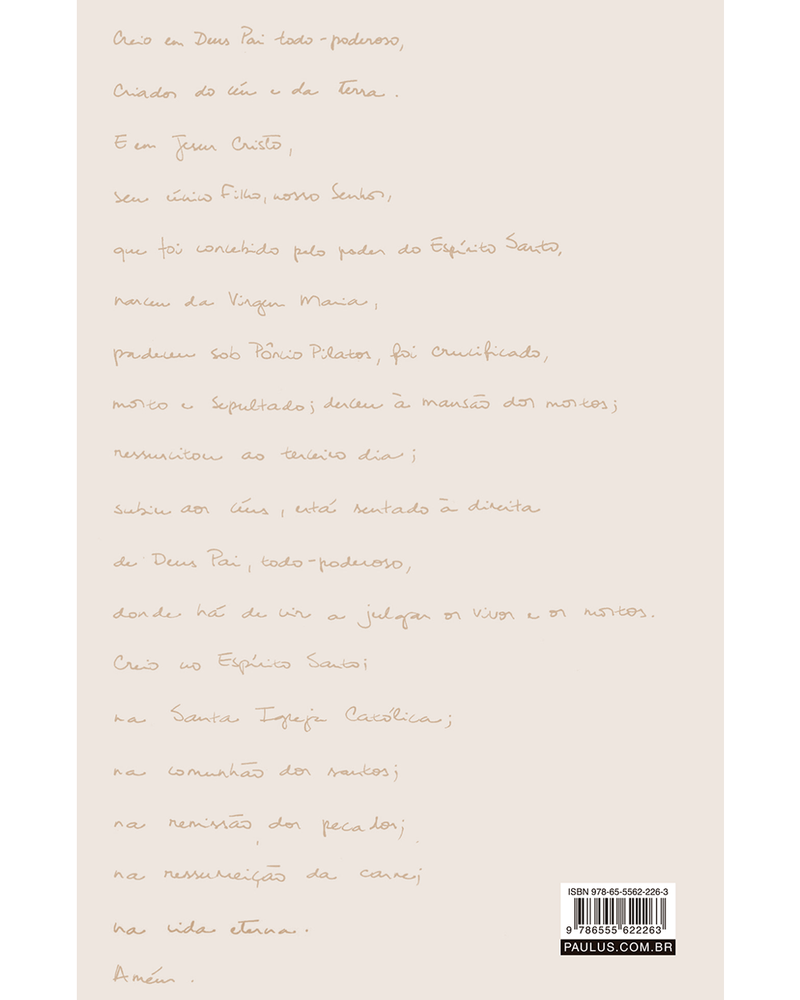 Creio em Deus Pai todo-poderoso,
Criador do céu e da terra.
E em Jesus Cristo,
seu único Filho, nosso Senhor,
que foi concebido pelo poder do Espírito Santo,
nasceu da Virgem Maria,
padeceu sob Pôncio Pilatos, foi crucificado,
morto e sepultado; desceu à mansão dos mortos;
ressuscitou ao terceiro dia;
subiu aos céus, está sentado à direita
de Deus Pai, todo-poderoso,
donde há de vir a julgar os vivos e os mortos.
Creio no Espírito Santo;
na Santa Igreja Católica;
na comunhão dos santos;
na remissão dos pecados;
na ressurreição da carne;
na vida eterna.
Amém.
ISBN 978-65-5562-226-3
9 786555 622263
PAULUS.COM.BR